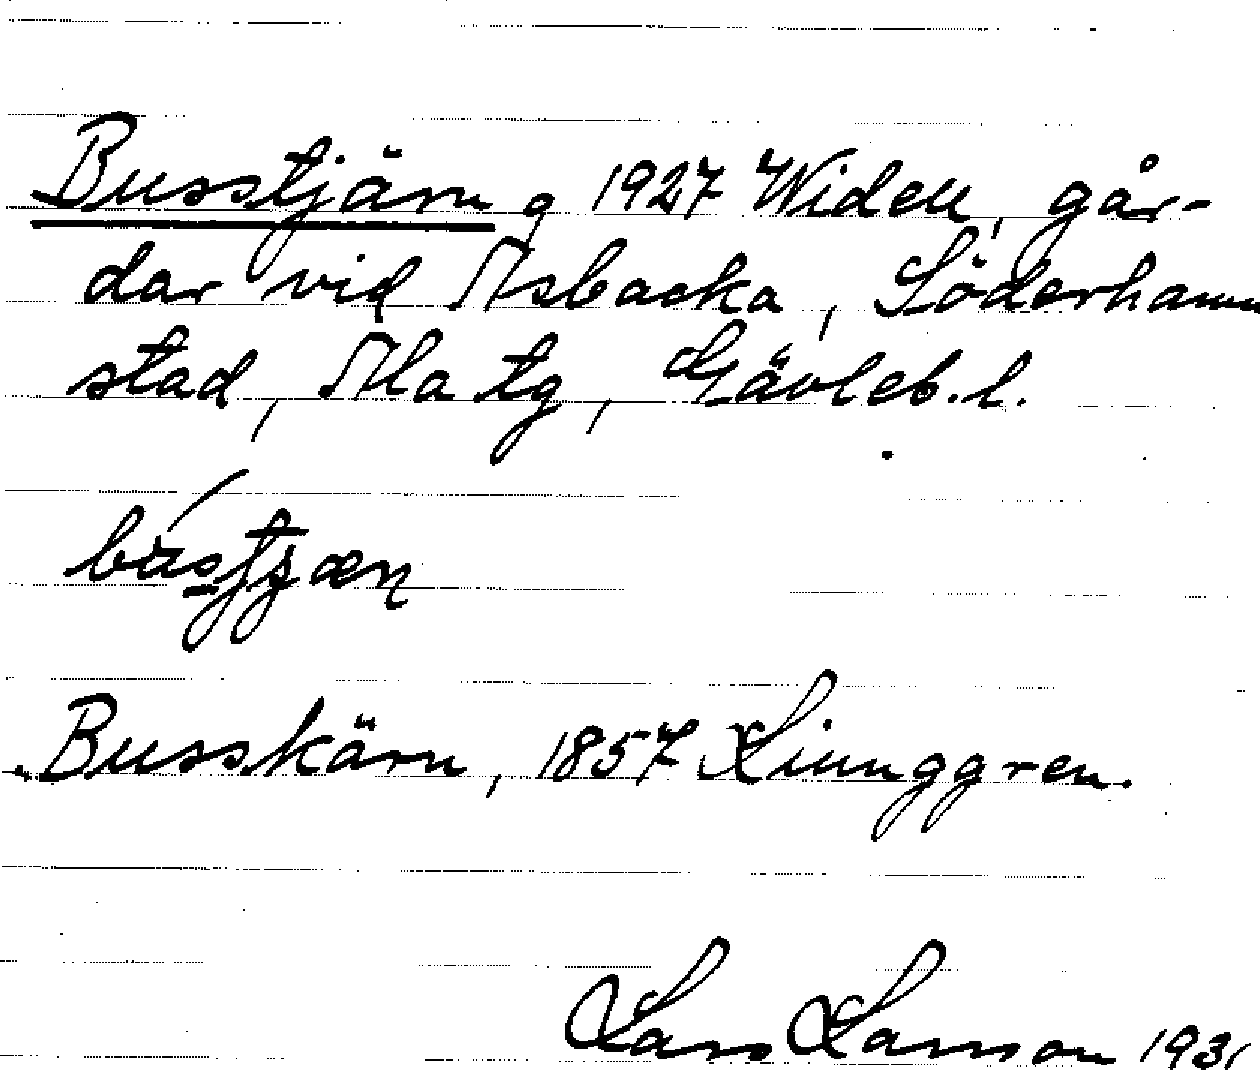 Busstjärn, 1927 Widell, går-
dar vid Åsbacka, Söderhamns
stad, Ala tg, Gävleb. l.
Busskärn, 1857 Ljunggren.
Lars Larsson 1931